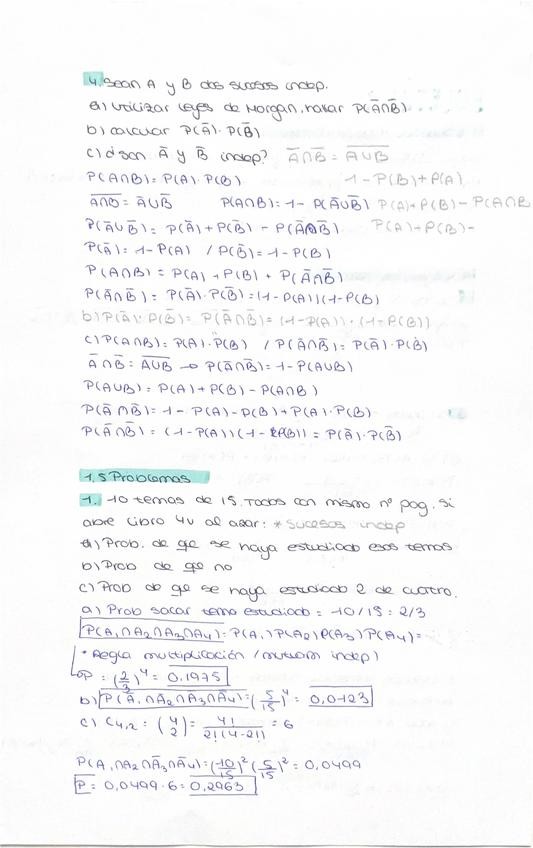 4. Sean A y B dos sucesos indep.
a) Utilizar leyes de Morgan, hallar P(Ā∩B̄)
b) calcular P(Ā)·P(B̄)
c) ¿son Ā y B̄ indep? Ā∩B̄ = \overline{A∪B}
P(A∩B) = P(A)·P(B) 1-P(B)+P(A)
\overline{A∩B} = Ā∪B̄ P(A∩B) = 1 - P(Ā∪B̄) P(A)+P(B)-P(A∩B
P(Ā∪B̄) = P(Ā)+P(B̄) - P(Ā∩B̄) P(A)+P(B)-
P(Ā) = 1-P(A) / P(B̄) = 1-P(B)
P(A∩B) = P(A)+P(B)+P(Ā∩B̄)
P(Ā∩B̄) = P(Ā)·P(B̄) = (1-P(A))(1-P(B)
b) P(Ā)·P(B̄) = P(Ā∩B̄) = (1-P(A))·(1-P(B))
c) P(A∩B) = P(A)·P(B) / P(Ā∩B̄) = P(Ā)·P(B̄)
Ā∩B̄ = \overline{A∪B} → P(Ā∩B̄) = 1-P(A∪B)
P(A∪B) = P(A)+P(B)-P(A∩B)
P(Ā∩B̄) = 1-P(A)-P(B)+P(A)·P(B)
P(Ā∩B̄) = (1-P(A))(1-P(B)) = P(Ā)·P(B̄)
1.5 Problemas
1. 10 temas de 15. Todos con mismo nº pag. Si
abre libro 4v al azar: *sucesos indep
a) Prob. de qe se haya estudiado esos temas
b) Prob de qe no
c) Prob de qe se haya estudiado 2 de cuatro.
a) Prob sacar tema estudiado = 10/15 = 2/3
P(A₁∩A₂∩A₃∩A₄) = P(A₁)P(A₂)P(A₃)P(A₄) =
*Regla multiplicación (mutuam indep)
P = (2/3)⁴ = 0,1975
b) P(Ā₁∩Ā₂∩Ā₃∩Ā₄) = (5/15)⁴ = 0,0123
c) C₄,₂ = (4 2) = 4!/2!(4-2!) = 6
P(A₁∩A₂∩Ā₃∩Ā₄) = (10/15)² (5/15)² = 0,0499
P = 0,0499·6 = 0,2963